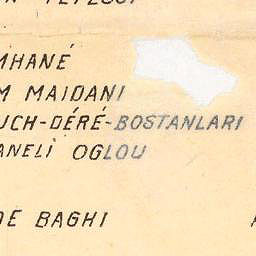 MHANÉ
M MAIDANI
UCH-DÉRÉ-BOSTANLARI
ANELÌ OGLOU
DE BAGHI